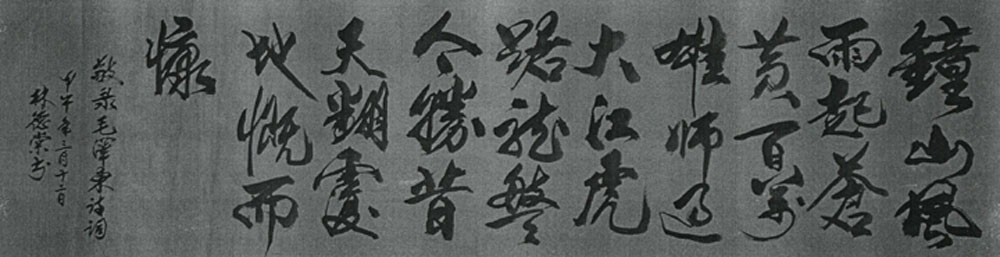 鐘山風
雨起蒼
黄百萬
雄师过
大江虎
踞龙盤
今勝昔
天翻覆
地慨而
慷
敬录毛澤東诗词
甲午年三月十二日
林德荣书